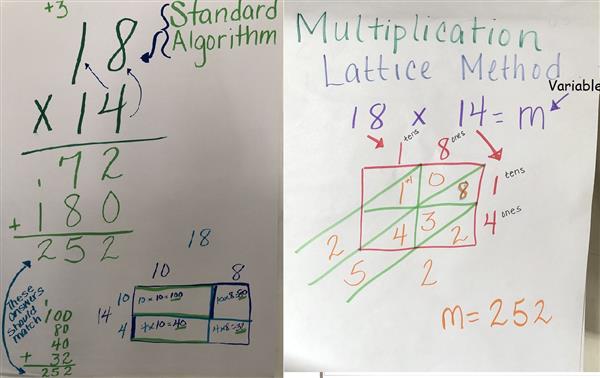 +3
Standard
Algorithm
18
x 14
1
72
+ 180
252
18
10 8
14
10
10 x 10 = 100
10x8=80
4
4x10=40
4x8=32
These answers should match
1
100
80
40
+ 32
252
Multiplication
Lattice Method
Variable
18 x 14 = m
1 tens 8 ones
1 tens
4 ones
+1
1 0 8
4 3 2
2
5 2
m=252